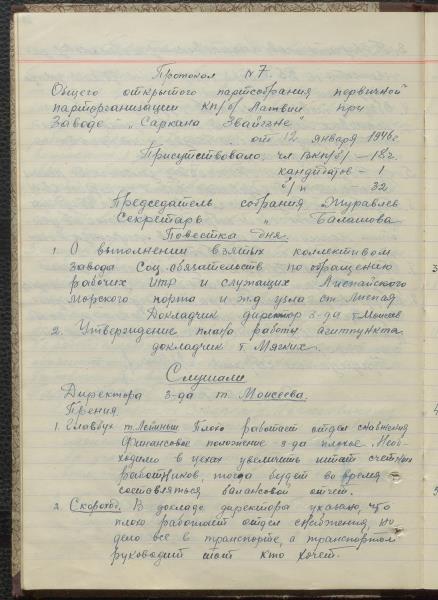 Протокол № 7.
Общего открытого партсобрания первичной
парторганизации КП/б/ Латвии при
Заводе - "Саркана Звайгзне"
от 12 января 1946 г.
Присутствовало: чл. ВКП/б/ - 18 ч.
кандидатов - 1
б/п - 32
Председатель собрания Журавлев
Секретарь " Балашова
Повестка дня.
1. О выполнении взятых коллективом
завода Соц. обязательств по обращению
рабочих ИТР и служащих Лиепайского
морского порта и ж.д узла ст. Лиепая
Докладчик директор з-да т. Моисеев
2. Утверждение плана работы агитпункта
докладчик т. Мягких.
Слушали
Директора з-да т. Моисеева.
Прения
1. Главбух т. Лепиньш Плохо работает отдел снабжения
Финансовое положение з-да плохое. Необ-
ходимо в цехах увеличить штат счетных
работников, тогда будет во время
составляться балансовой отчет.
2. Скороход. В докладе директора указано, что
плохо работает отдел снабжения, но
дело все в транспорте, а транспортом
руководит тот кто хочет.